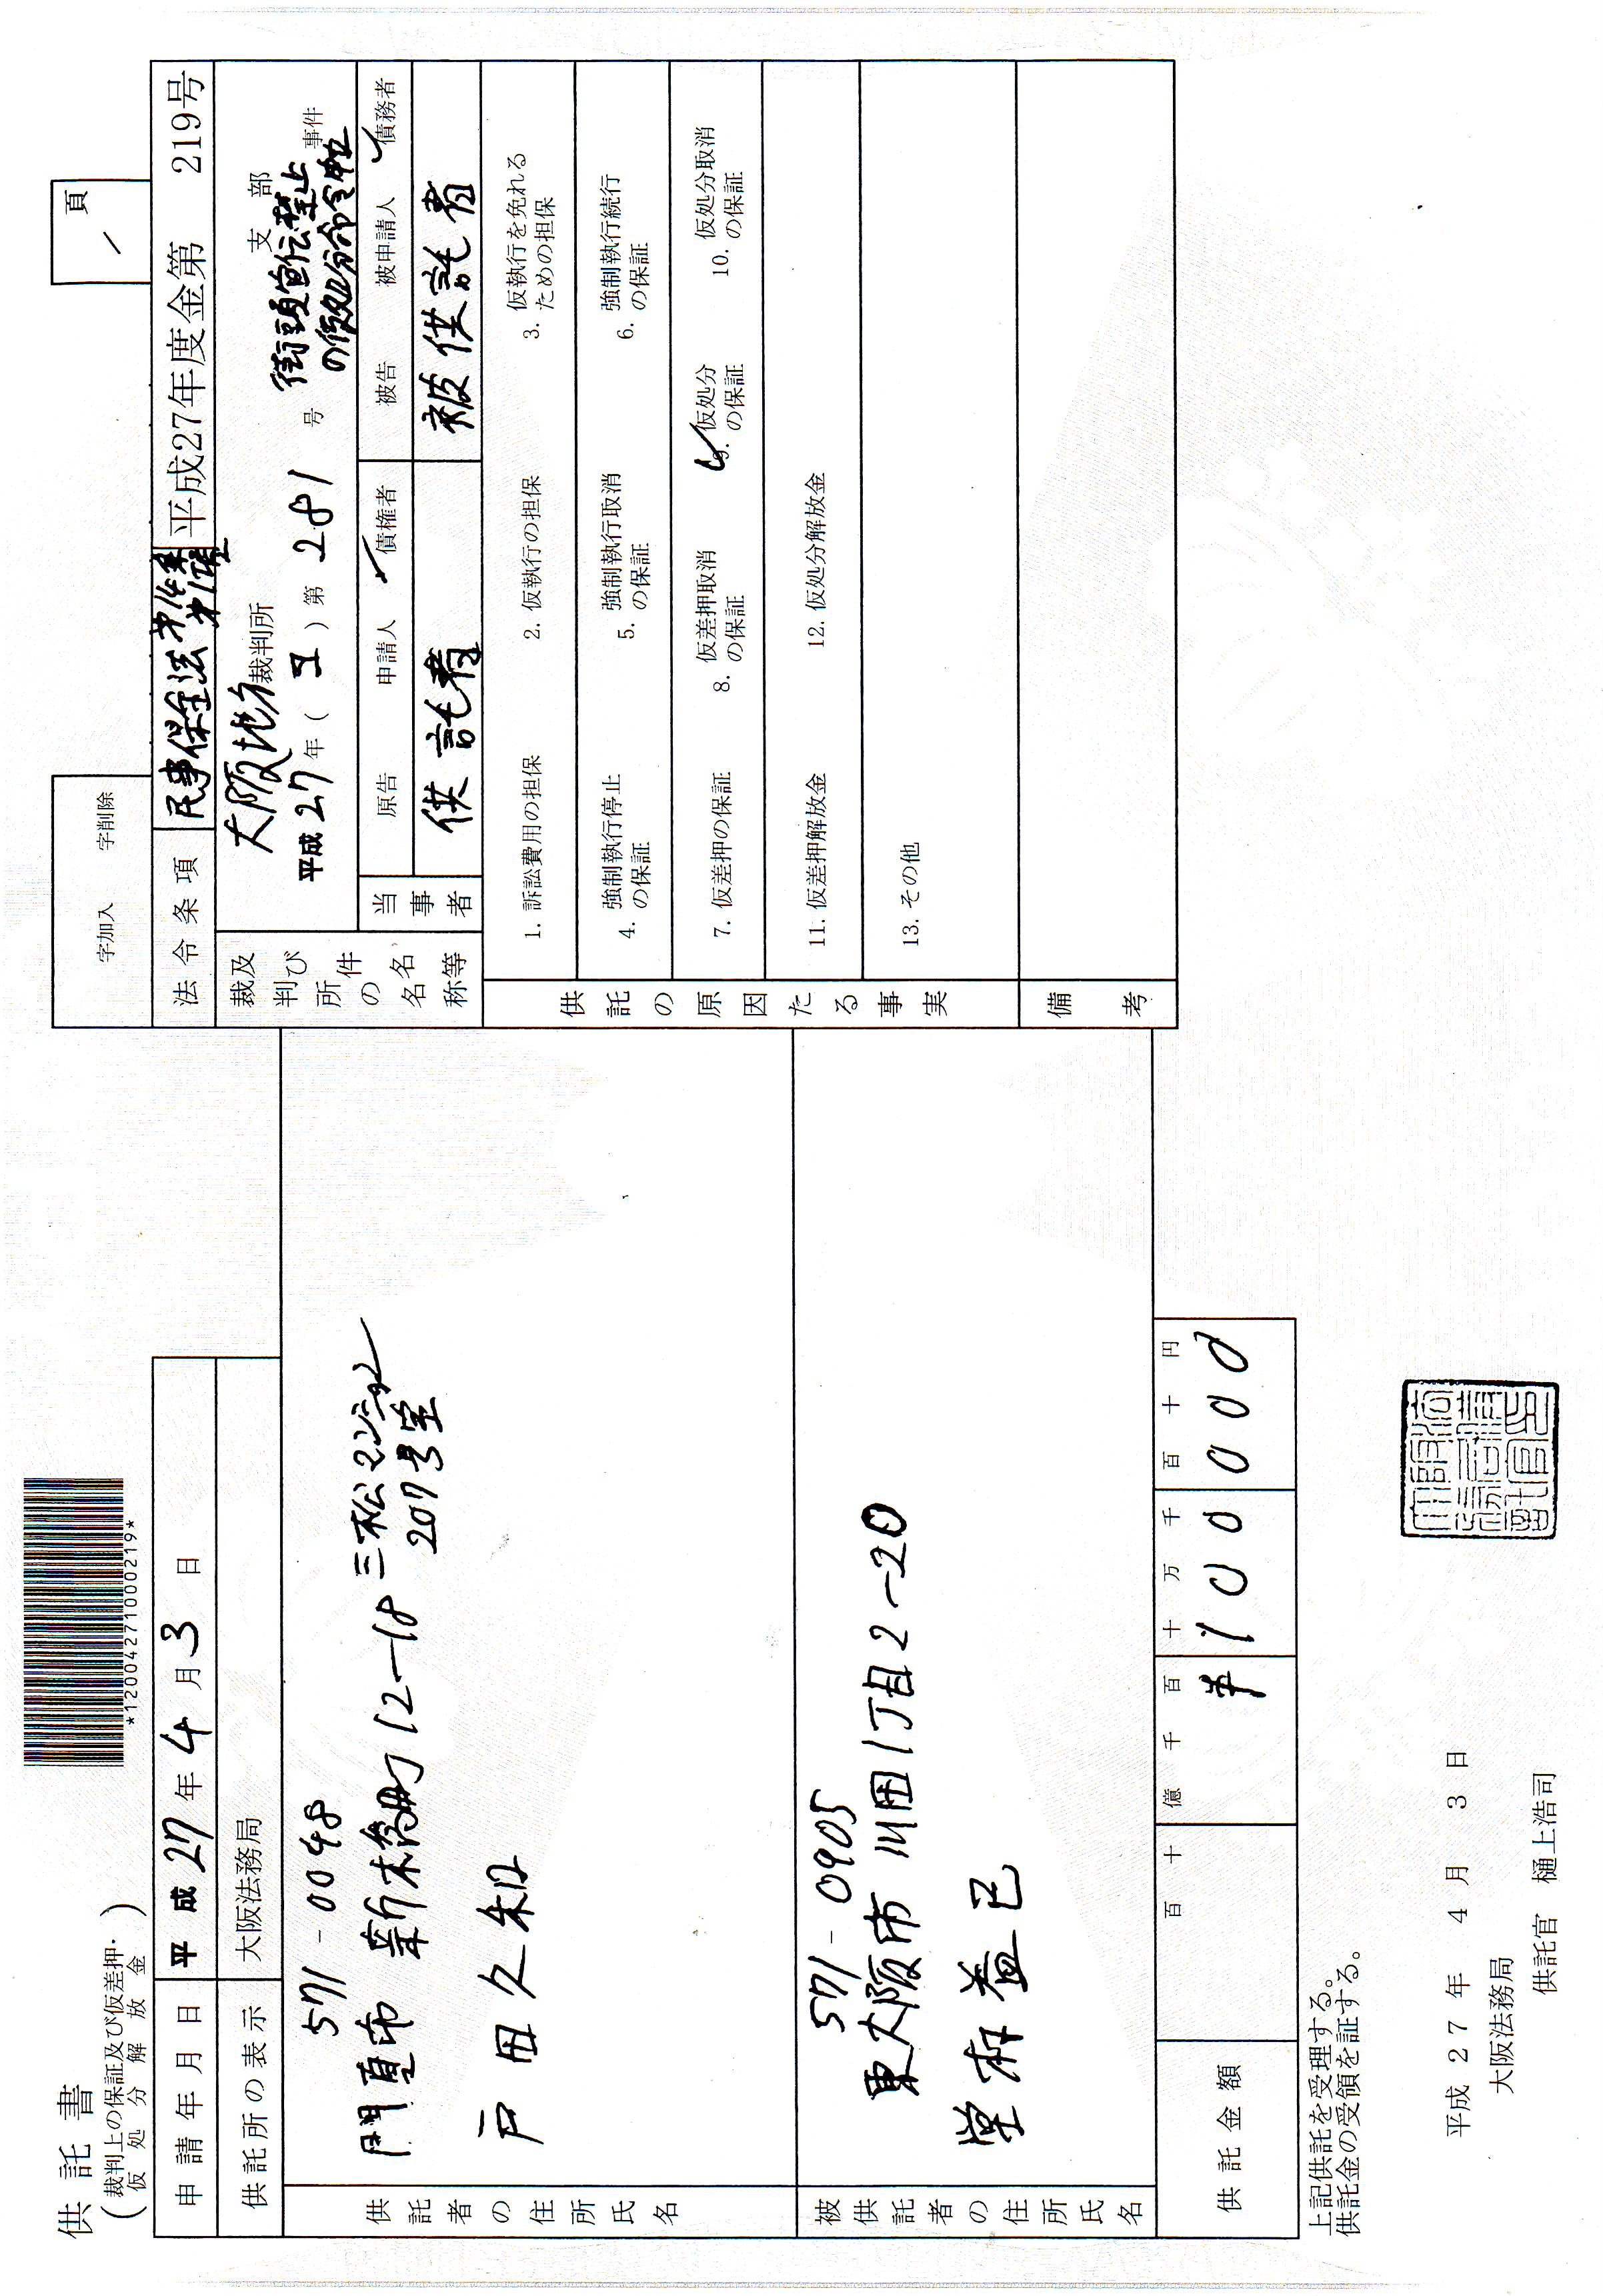 供託書
(裁判上の保証及び仮差押・仮処分解放金)
*120042710000219*
申請年月日 平成27年4月3日
供託所の表示 大阪法務局
供託者の住所氏名
571-0048
門真市 新橋町12-18 三松マンション
207号室
戸田久和
被供託者の住所氏名
571-0905
東大阪市 川田1丁目2-20
供託金額
百 十 億 千 百 十 万 千 百 十 円
¥100000
上記供託を受理する。
供託金の受領を証する。
平成27年 4月 3日
大阪法務局
供託官 樋上浩司
字加入 字削除
頁
/
法令条項 民事保全法第14条第1項 平成27年度金第 219号
裁判所及び事件の名称等
大阪地方裁判所 支部
平成27年(ヨ)第281号 街頭宣伝禁止の仮処分命令申立事件
当事者
原告 申請人 ✓債権者 被告 被申請人 ✓債務者
供託者 被供託者
供託の原因たる事実
1. 訴訟費用の担保 2. 仮執行の担保 3. 仮執行を免れるための担保
4. 強制執行停止の保証 5. 強制執行取消の保証 6. 強制執行続行の保証
7. 仮差押の保証 8. 仮差押取消の保証 ✓9. 仮処分の保証 10. 仮処分取消の保証
11. 仮差押解放金 12. 仮処分解放金
13. その他
備考